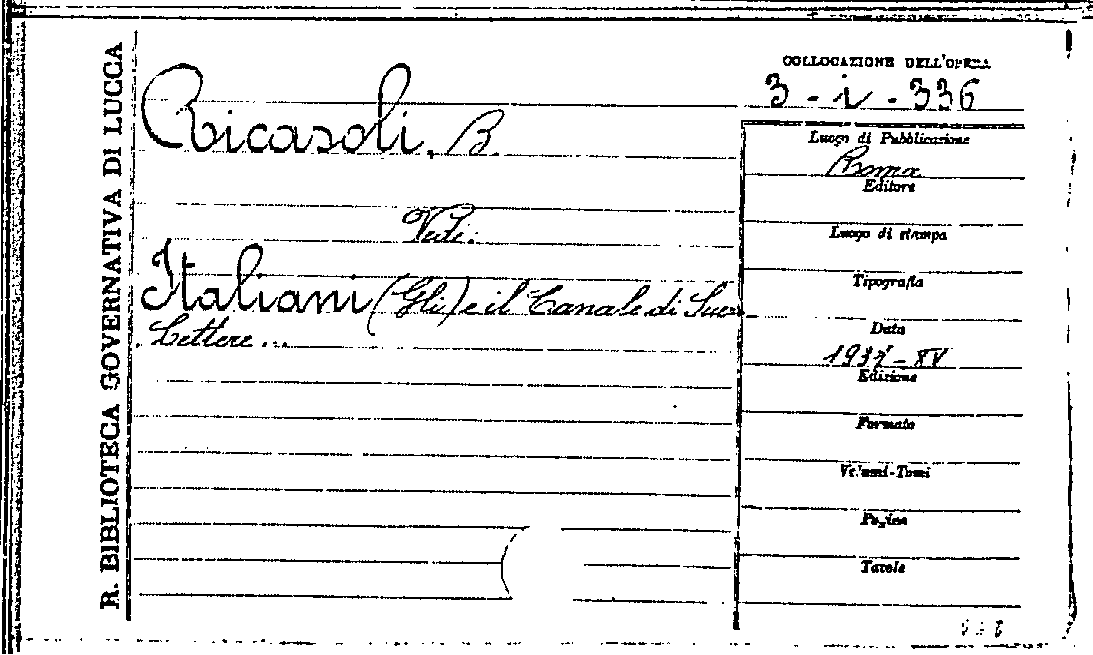 R. BIBLIOTECA GOVERNATIVA DI LUCCA
Ricasoli, B.
Vedi:
Italiani (Gli) e il Canale di Suez
Lettere ...
COLLOCAZIONE DELL'OPERA
3 - i - 336
Luogo di Pubblicazione
Roma
Editore
Luogo di stampa
Tipografia
Data
1937 - XV
Edizione
Formato
Volumi-Tomi
Pagine
Tavole